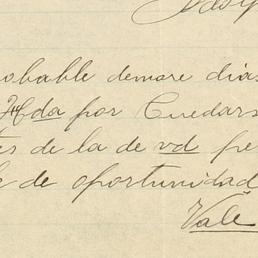 obable demore dias
Hda por Cuedars
tes de la de vd pe
de oportunidad
Vale